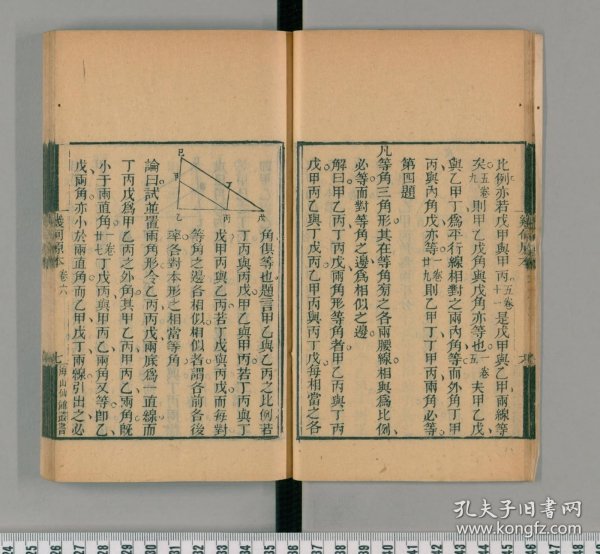 比例亦若戊甲與甲丙五卷十一是戊甲與乙甲兩線等
矣五卷九則甲乙戊角與戊角亦等也一卷五夫甲乙戊
與乙甲丁為平行線相對之兩內角等而外角丁甲
丙與內角戊亦等一卷廿九則乙甲丁丁甲丙兩角必等
第四題
凡等角三角形其在等角旁之各兩腰線相與為比例
必等而對等角之邊為相似之邊
解曰甲乙丙丁丙戊兩角形等角者甲乙丙與丁丙
戊甲丙乙與丁戊丙乙甲丙與丙丁戊每相當之各
角俱等也題言甲乙與乙丙之比例若
丁丙與丙戊甲乙與甲丙若丁丙與丁
戊甲丙與乙丙若丁戊與丙戊而每對
等角之邊各相似相似者謂各前各後
率各對本形之相當等角
論曰試並置兩角形令乙丙丙戊兩底為一直線而
丁丙戊為甲乙丙之外角其甲乙丙甲丙乙兩角既
小于兩直角一卷十七丁戊丙與甲丙乙兩角又等即乙
戊兩角亦小於兩直角而乙甲戊丁兩線引出之必
己
甲
丁
乙
丙
戊
幾何原本
卷六
七
海山仙館叢書
孔夫子旧书网
www.kongfz.com
24
25
26
27
28
29
30
31
32
33
34
35
36
37
38
39
40
41
42
43
44
45
46
47
48